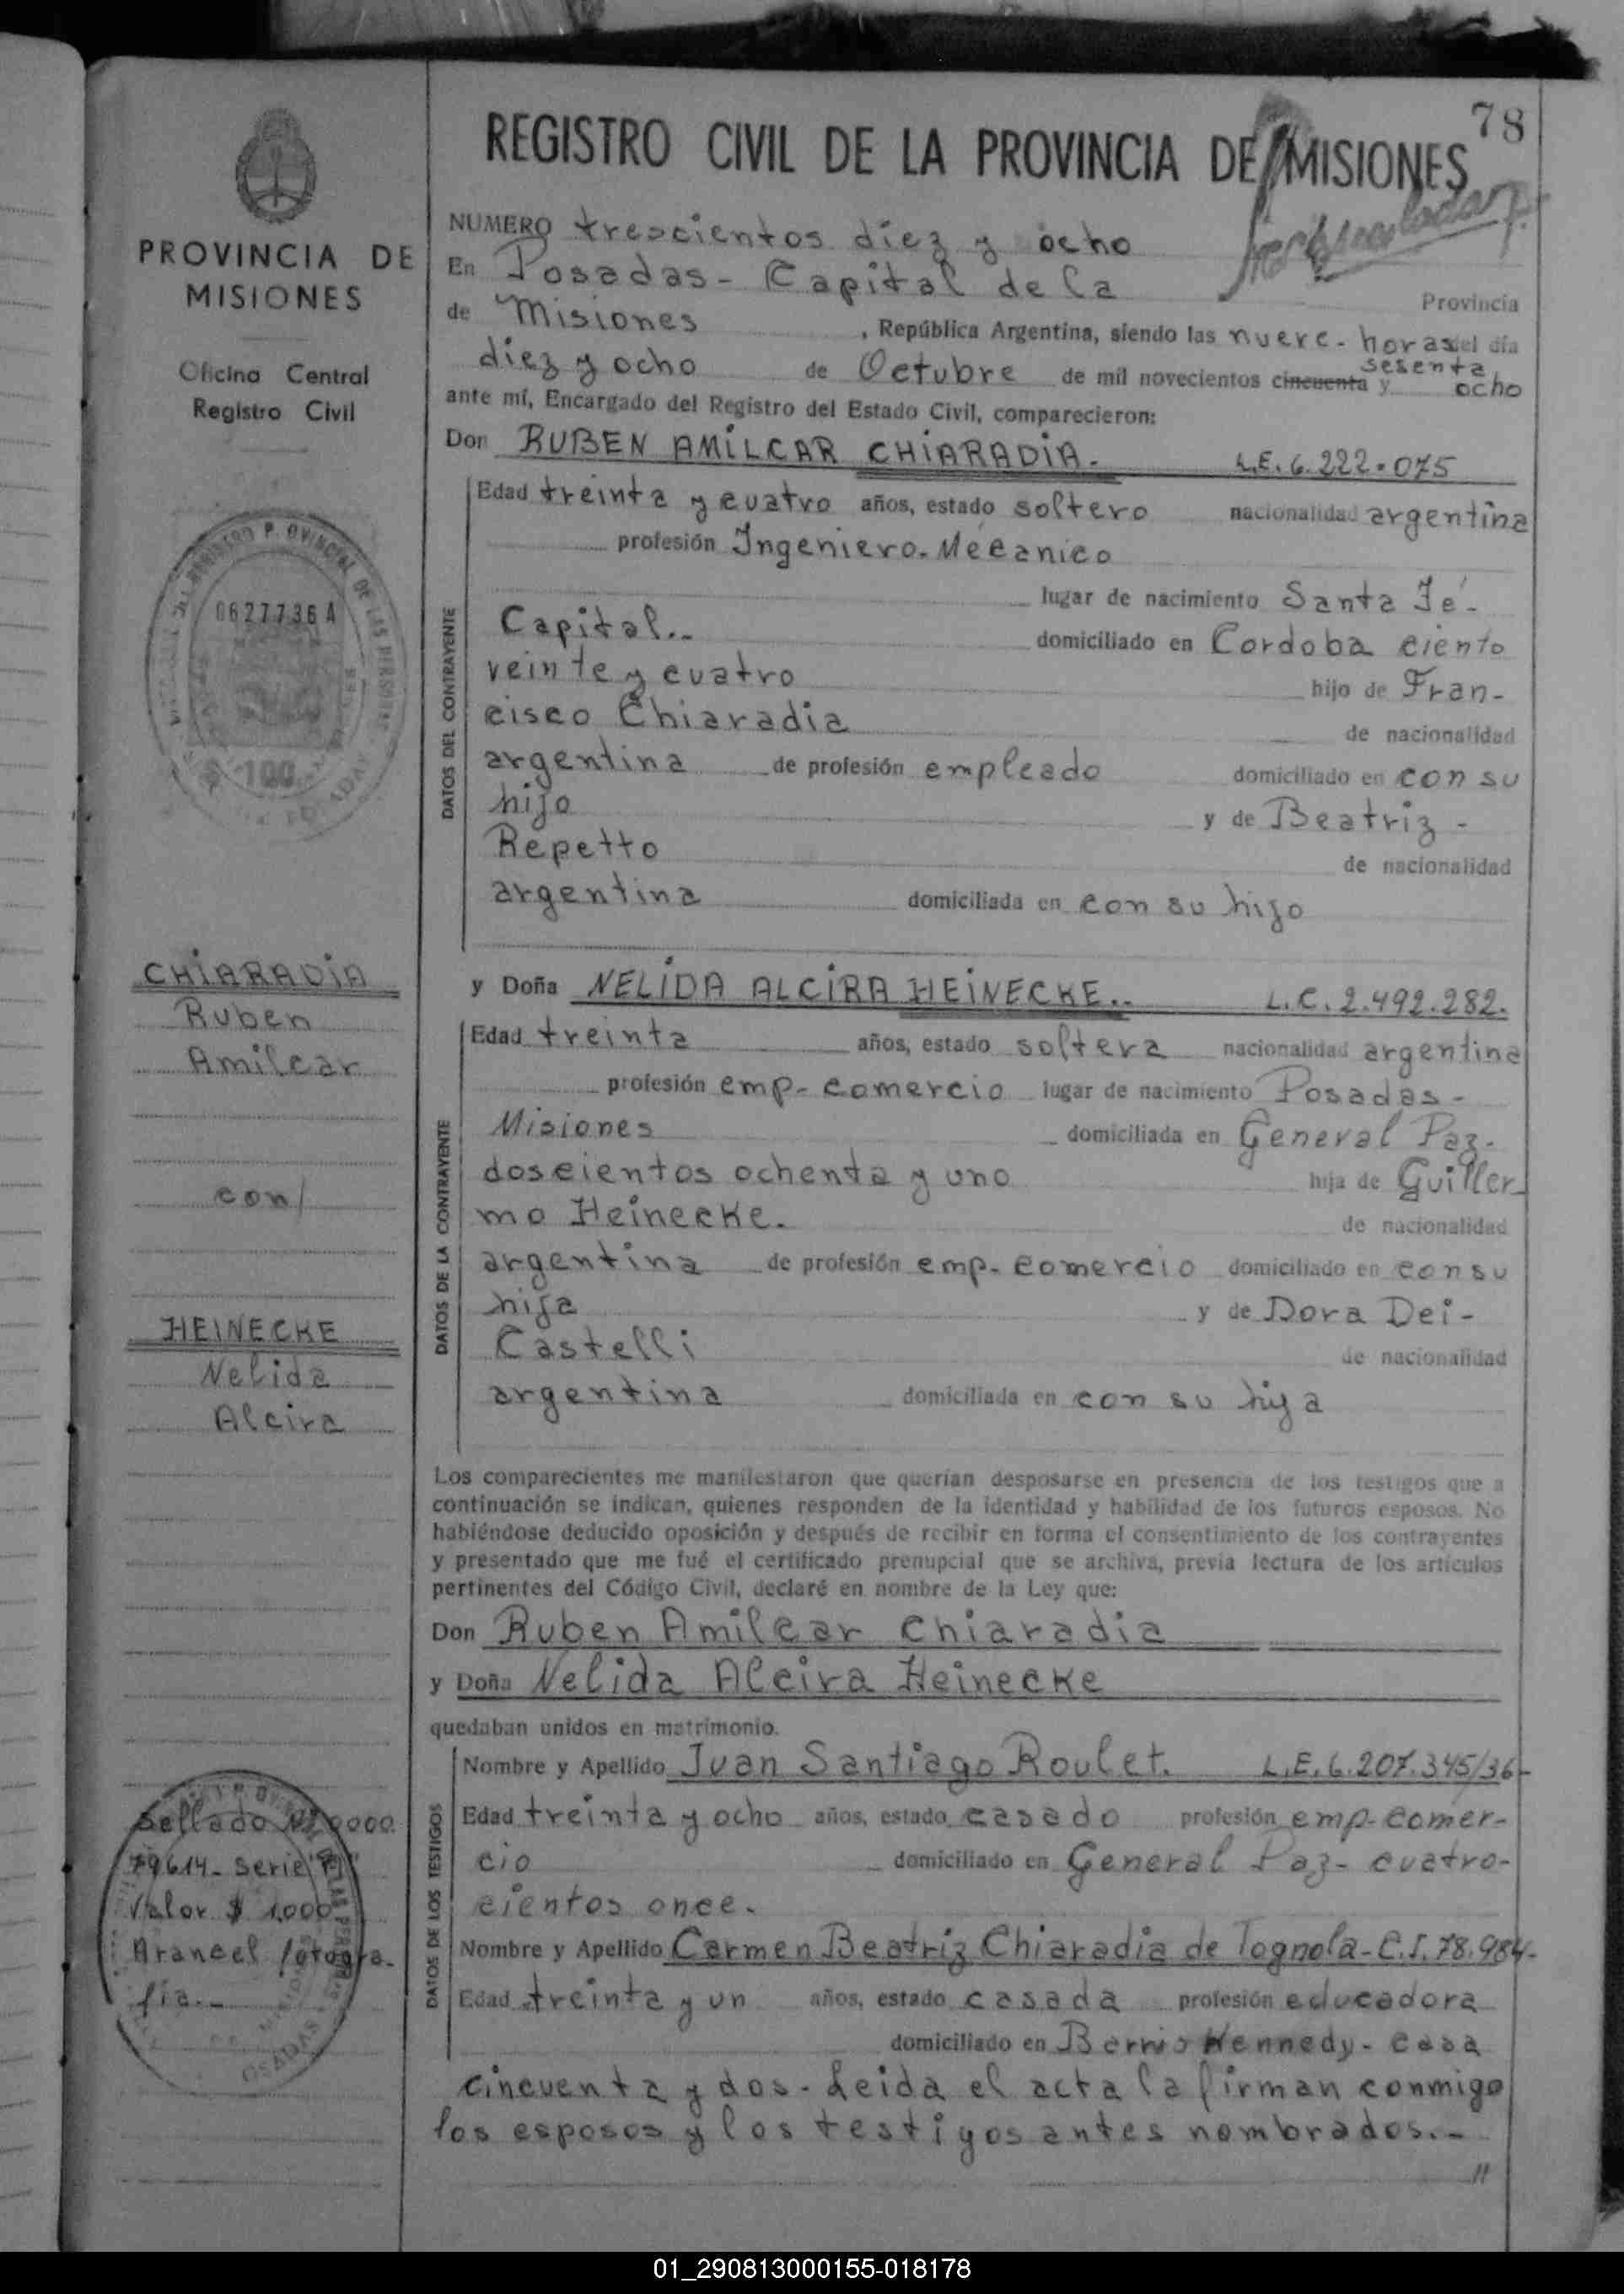 78
REGISTRO CIVIL DE LA PROVINCIA DE MISIONES
PROVINCIA DE
MISIONES
Oficina Central
Registro Civil
0627736 A
$ 100
CHIARADIA
Ruben
Amilcar
con/
HEINECKE
Nelida
Alcira
Sellado Nº 0000
79614 - Serie
Valor $ 1.000
Arancel fotogra-
fia.-
NUMERO trescientos diez y ocho
En Posadas - Capital de la Provincia
de Misiones, República Argentina, siendo las nueve - horas del día
diez y ocho de Octubre de mil novecientos cincuenta sesenta y ocho
ante mí, Encargado del Registro del Estado Civil, comparecieron:
Don RUBEN AMILCAR CHIARADIA.- L.E. 6.222.075
DATOS DEL CONTRAYENTE
Edad treinta y cuatro años, estado soltero nacionalidad argentina
profesión Ingeniero - Mécanico
lugar de nacimiento Santa Fé -
Capital.- domiciliado en Cordoba ciento
veinte y cuatro hijo de Fran-
cisco Chiaradia de nacionalidad
argentina de profesión empleado domiciliado en con su
hijo y de Beatriz -
Repetto de nacionalidad
argentina domiciliada en con su hijo
y Doña NELIDA ALCIRA HEINECKE.- L.C. 2.492.282.
DATOS DE LA CONTRAYENTE
Edad treinta años, estado soltera nacionalidad argentina
profesión emp - comercio lugar de nacimiento Posadas -
Misiones domiciliada en General Paz -
doscientos ochenta y uno hija de Guiller-
mo Heinecke. de nacionalidad
argentina de profesión emp - comercio domiciliado en con su
hija y de Dora Dei -
Castelli de nacionalidad
argentina domiciliada en con su hija
Los comparecientes me manifestaron que querían desposarse en presencia de los testigos que a
continuación se indican, quienes responden de la identidad y habilidad de los futuros esposos. No
habiéndose deducido oposición y después de recibir en forma el consentimiento de los contrayentes
y presentado que me fué el certificado prenupcial que se archiva, previa lectura de los artículos
pertinentes del Código Civil, declaré en nombre de la Ley que:
Don Ruben Amilcar Chiaradia
y Doña Nelida Alcira Heinecke
quedaban unidos en matrimonio.
DATOS DE LOS TESTIGOS
Nombre y Apellido Juan Santiago Roulet. L.E. 6.207.345/36-
Edad treinta y ocho años, estado casado profesión emp - comer-
cio domiciliado en General Paz - cuatro-
cientos once.
Nombre y Apellido Carmen Beatriz Chiaradia de Tognola - C.I. 78.984-
Edad treinta y un años, estado casada profesión educadora
domiciliado en Kennedy - casa
cincuenta y dos - Leida el acta la firman conmigo
los esposos y los testigos antes nombrados.-
//
01_290813000155-018178